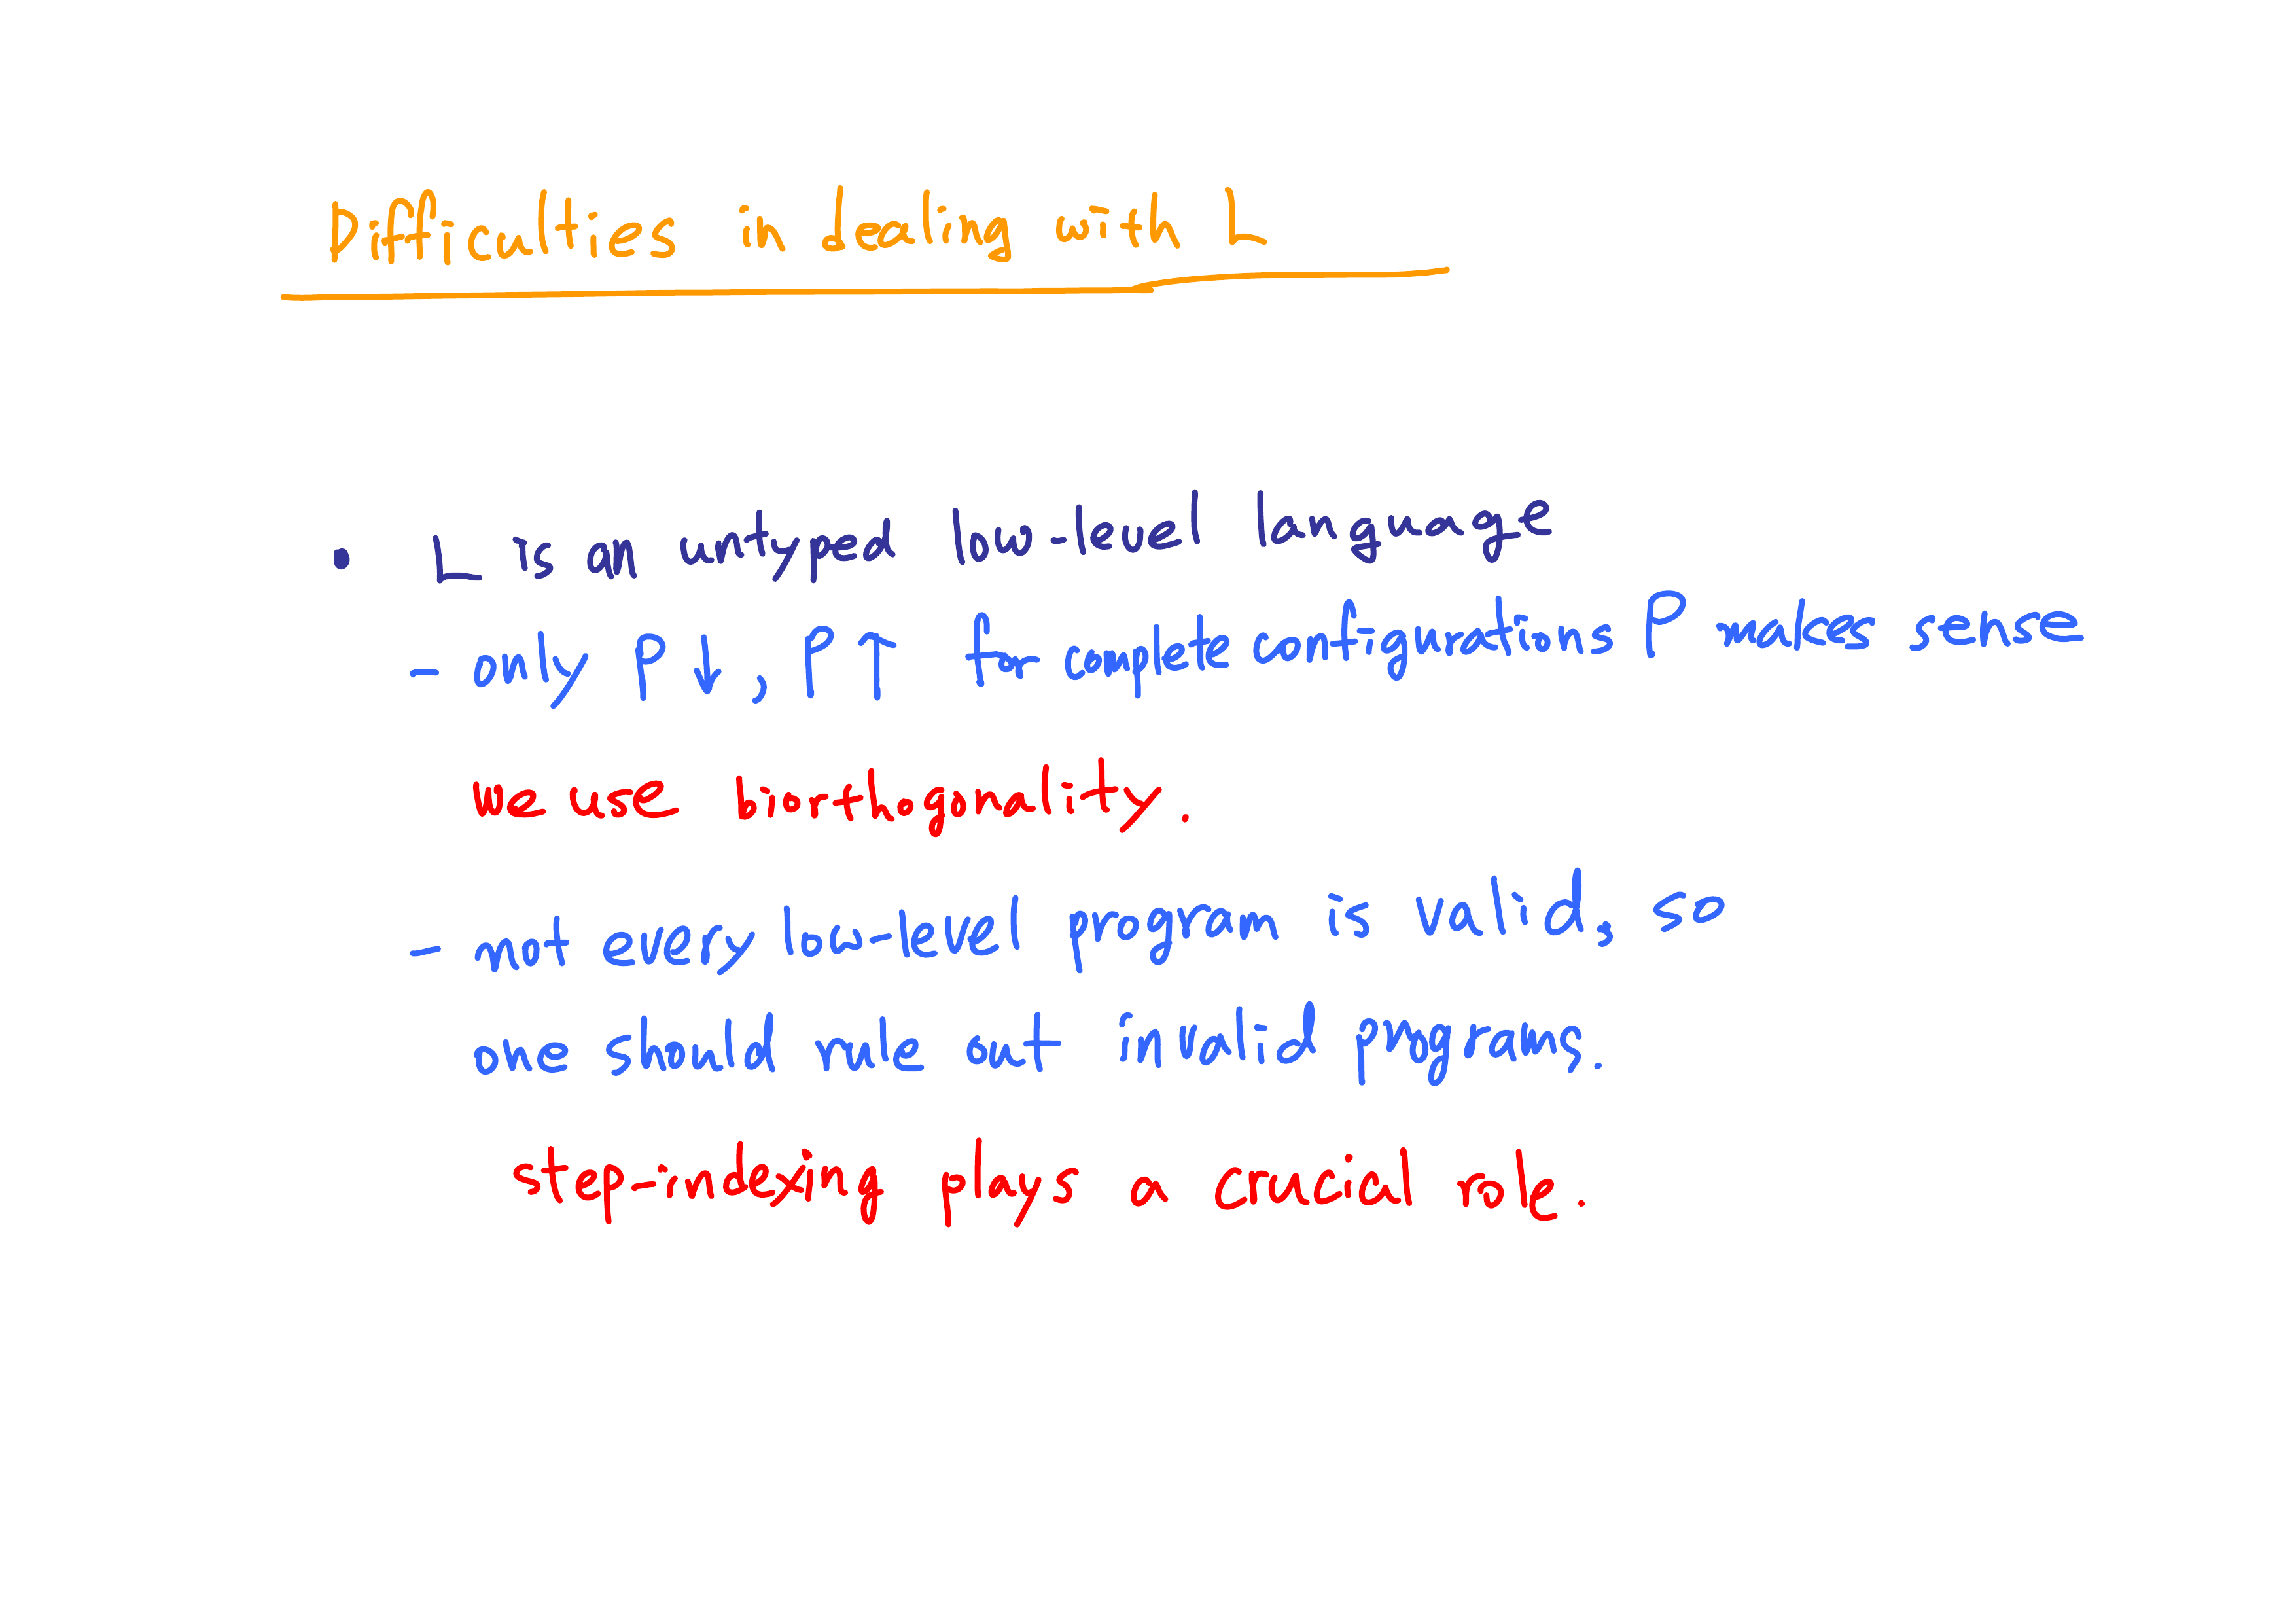 Difficulties in dealing with L
• L is an untyped low-level language
- only P↓, P↑ for complete configurations P makes sense
we use biorthogonality.
- not every low-level program is valid, so
one should rule out invalid programs.
step-indexing plays a crucial role.